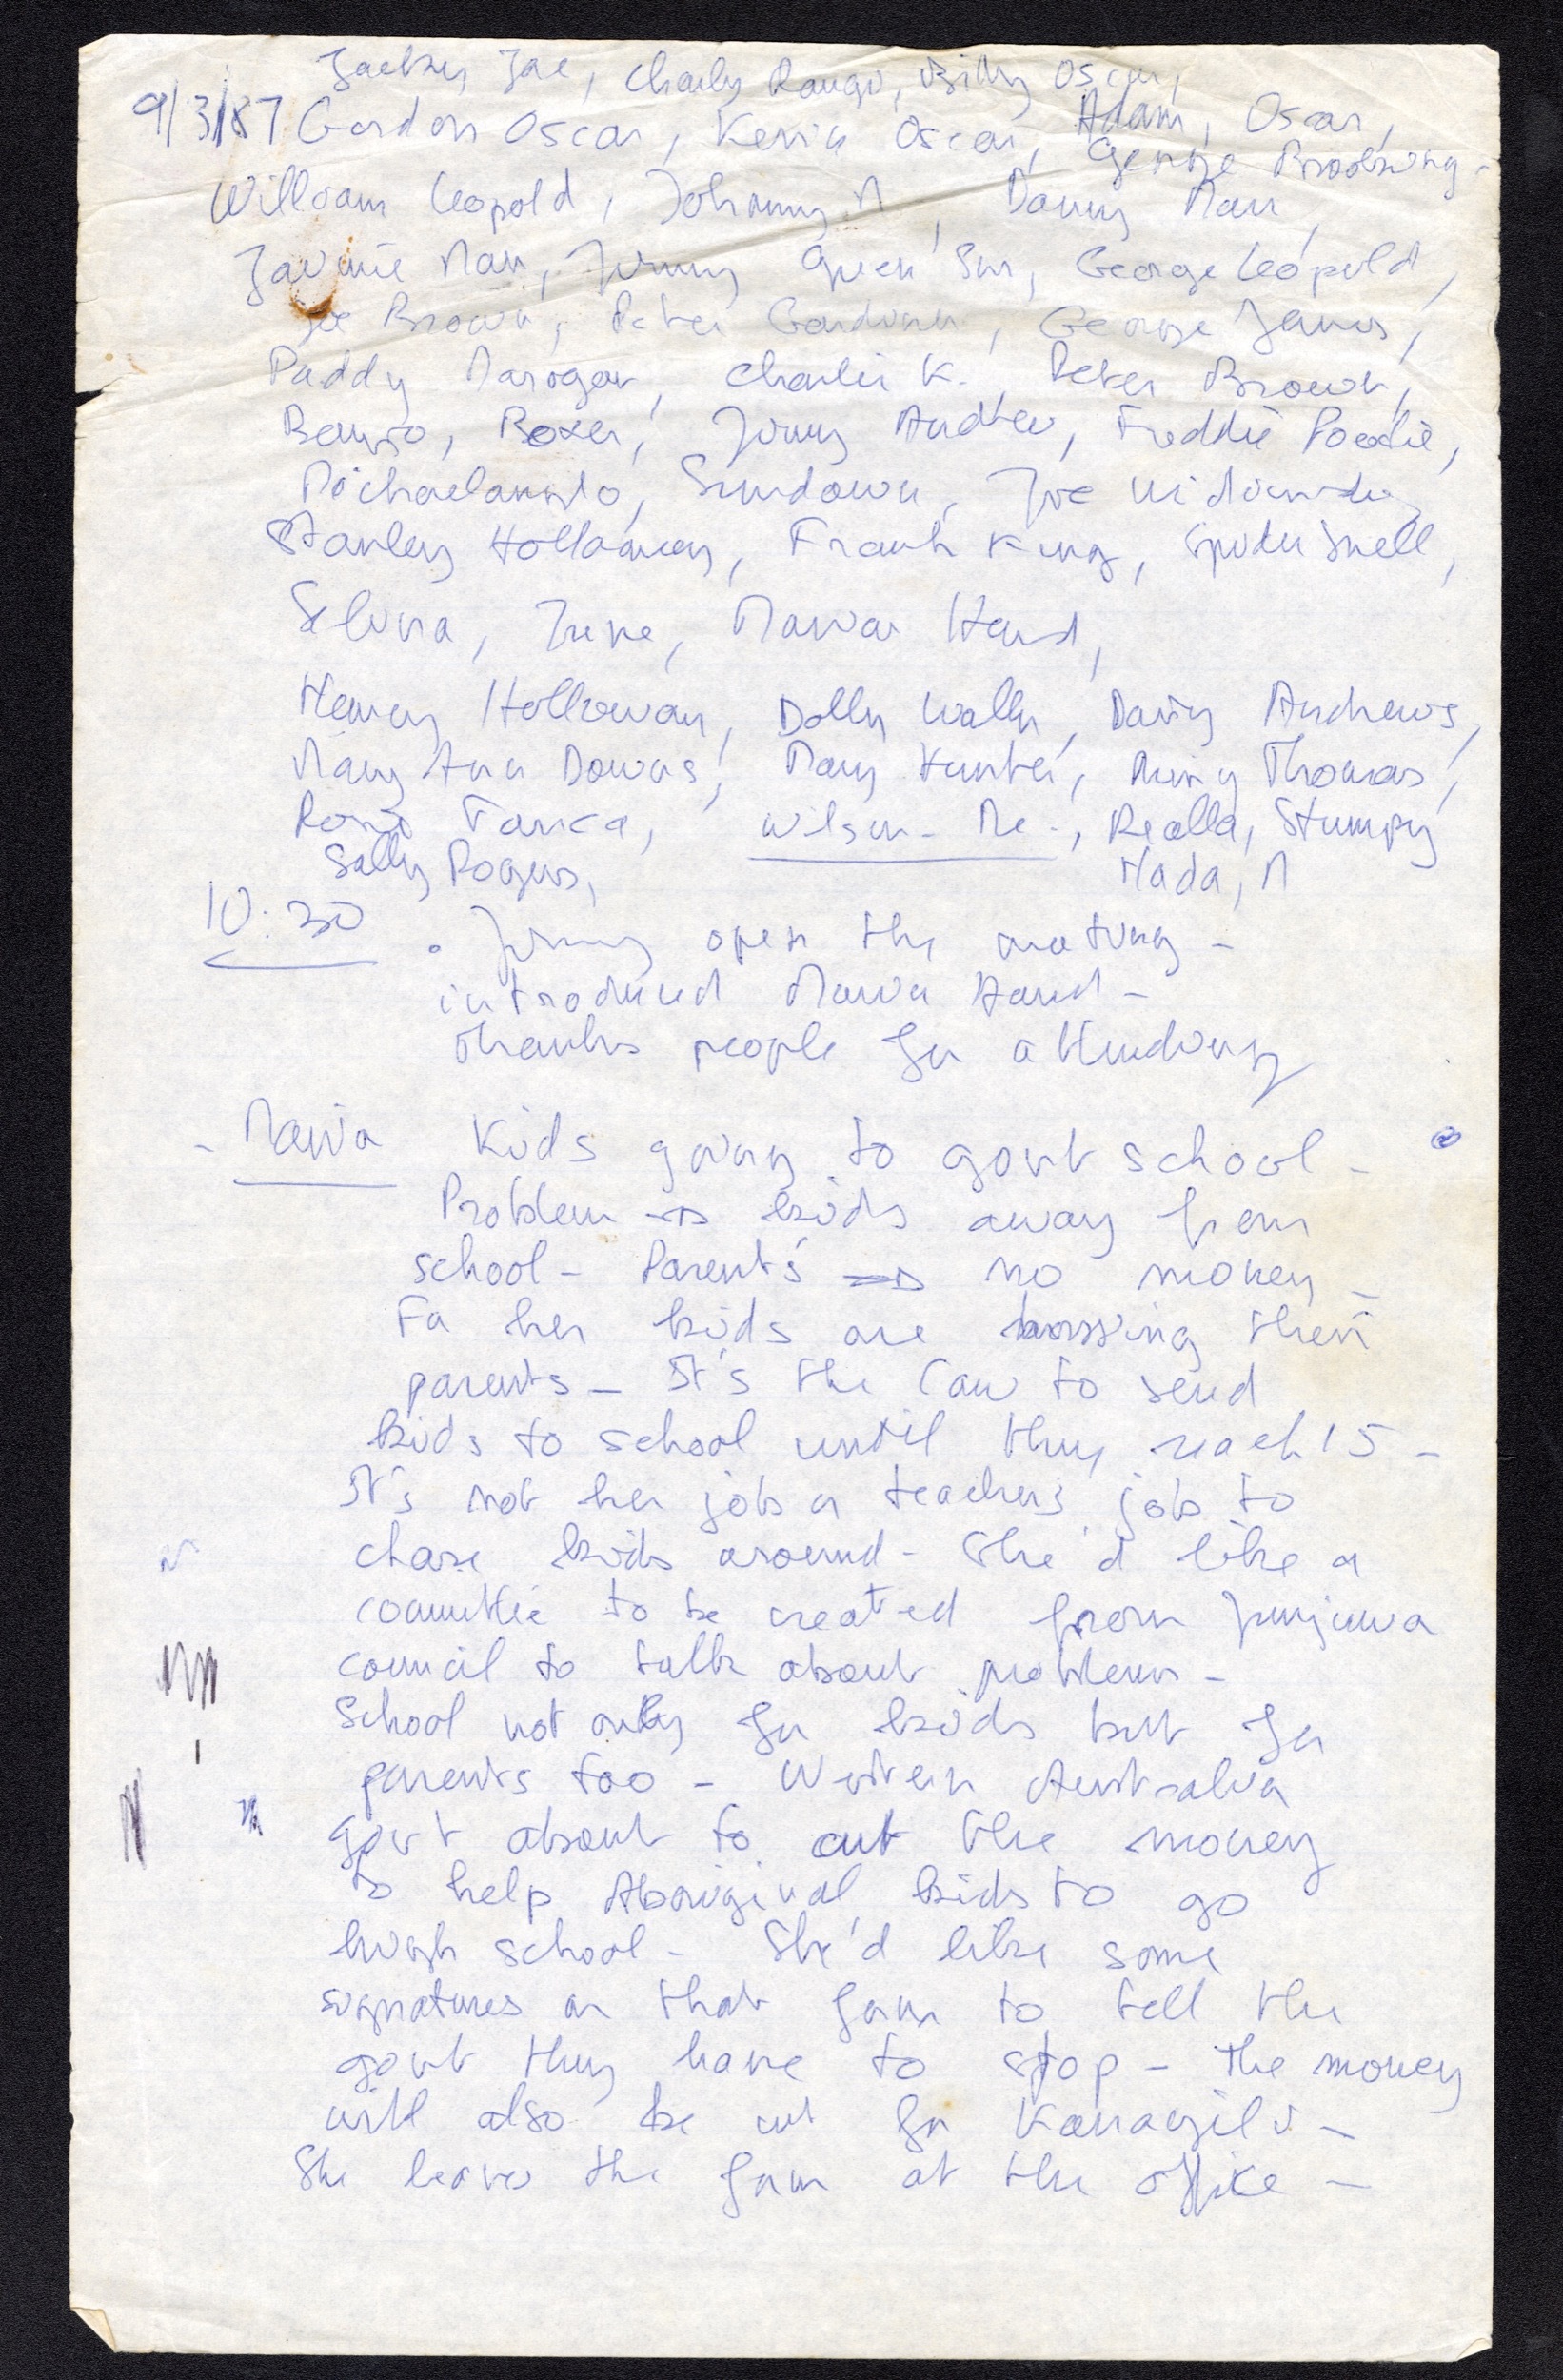 Jacky Joe, Charly Rangi, Billy Oscar,
9/3/87 Gordon Oscar, Kevin Oscar, Adam, Oscar,
George Brooking -
William Leopold, Johnny M, Danny Marr,
Jimmy Green Sm, George Leopold,
Joe Brown, Peter George James,
Paddy Charlie K., Peter Brown,
Banjo, Boxer, Jimmy Andrew, Freddie
Michaelangelo, Sundown, Joe
Stanley Holloway, Frank King, Spider Snell,
Selina, June, Maria Hand,
Henry Holloway, Dolly Wally, Davey Andrews,
Mary Ann Downs, Mary Hunter, Thomas,
Wilson - Me -, Stumpy
Sally Rogers, Nada, M
10:30 . Jimmy open the meeting -
introduced Maria Hand -
thanks people for attending
- Maria Kids going to govt school -
Problem → kids away from
school - Parents ⇒ no money -
For her kids are bossing their
parents - It's the law to send
kids to school until they reach 15 -
It's not her job or teachers job to
chase kids around - She'd like a
committee to be created from Junjuwa
council to talk about problems -
School not only for kids but for
parents too - Western Australia
govt about to cut the money
to help Aboriginal kids to go
high school - She'd like some
signatures on that form to tell the
govt they have to stop - The money
will also be cut for Karrayili -
She leaves the form at the office -